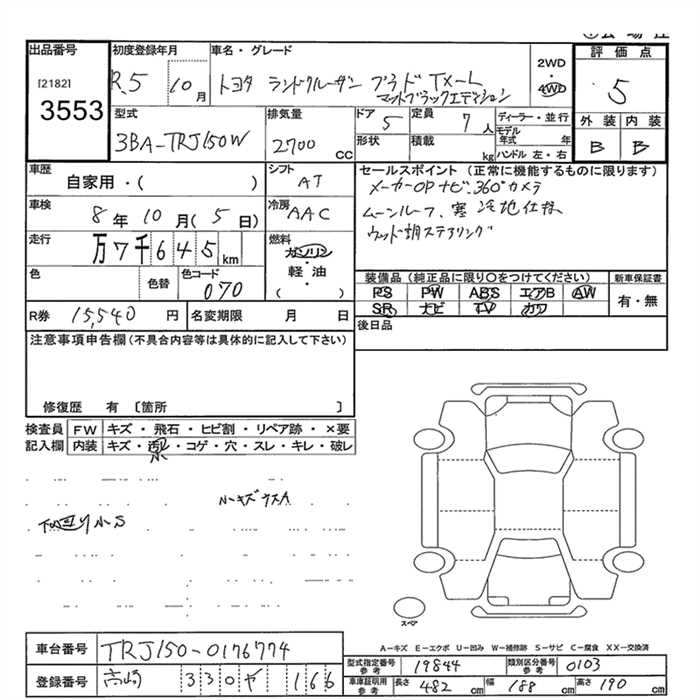 出品番号 初度登録年月 車名・グレード 2WD・4WD 評価点
[2182] 3553 R5 10月 トヨタ ランドクルーザー プラド TX-L マットブラックエディション 5
型式 排気量 ドア 定員 ディーラー・並行 外装 内装
3BA-TRJ150W 2700cc 5 7人 モデル年式 年 B B
形状 積載 kg ハンドル 左・右
車歴 シフト セールスポイント (正常に機能するものに限ります)
自家用・( ) AT メーカーOPナビ、360°カメラ
車検 冷房 ムーンルーフ、寒冷地仕様
8年10月(5日) AAC ウッド調ステアリング
走行 燃料
万7千645km ガソリン・軽・油・( )
色 色替 色コード 装備品 (純正品に限り○をつけてください) 新車保証書
070 PS PW ABS エアB AW 有・無
SR ナビ TV カワ
R券 15,540円 名変期限 月 日 後日品
注意事項申告欄(不具合内容等は具体的に記入して下さい)
修復歴 有 〔箇所 〕
検査員 FW キズ・飛石・ヒビ割・リペア跡・×要
記入欄 内装 キズ・汚レ・コゲ・穴・スレ・キレ・破レ
小
ルーキズウスA
下回り小S
スペア
A-キズ E-エクボ U-凹み W-補修跡 S-サビ C-腐食 XX-交換済
車台番号 TRJ150-0176774
型式指定番号 参考 19844 類別区分番号 参考 0103
登録番号 高崎 330 や 166
車庫証明用 参考 長さ 482cm 幅 188cm 高さ 190cm